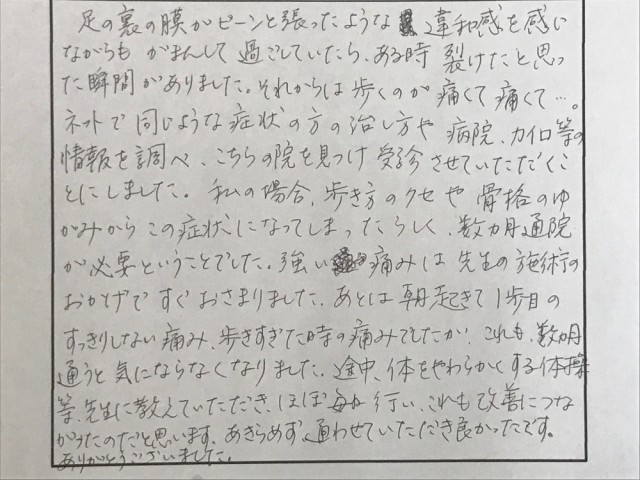 足の裏の膜がピーンと張ったような違和感を感じ
ながらも がまんして過ごしていたら、ある時 裂けたと思っ
た瞬間がありました。それからは歩くのが痛くて痛くて…。
ネットで同じような症状の方の治し方や 病院、カイロ等の
情報を調べ、こちらの院を見つけ受診させていただくこ
とにしました。私の場合、歩き方のクセや骨格のゆ
がみからこの症状になってしまったらしく、数ヵ月通院
が必要ということでした。強い痛みは先生の施術の
おかげですぐおさまりました。あとは朝起きて1歩目の
すっきりしない痛み、歩きすぎた時の痛みでしたが、これも、数ヵ月
通うと気にならなくなりました。途中、体をやわらかくする体操
等、先生に教えていただき、ほぼ毎日行い、これも改善につな
がったのだと思います。あきらめず、通わせていただき良かったです。
ありがとうございました。